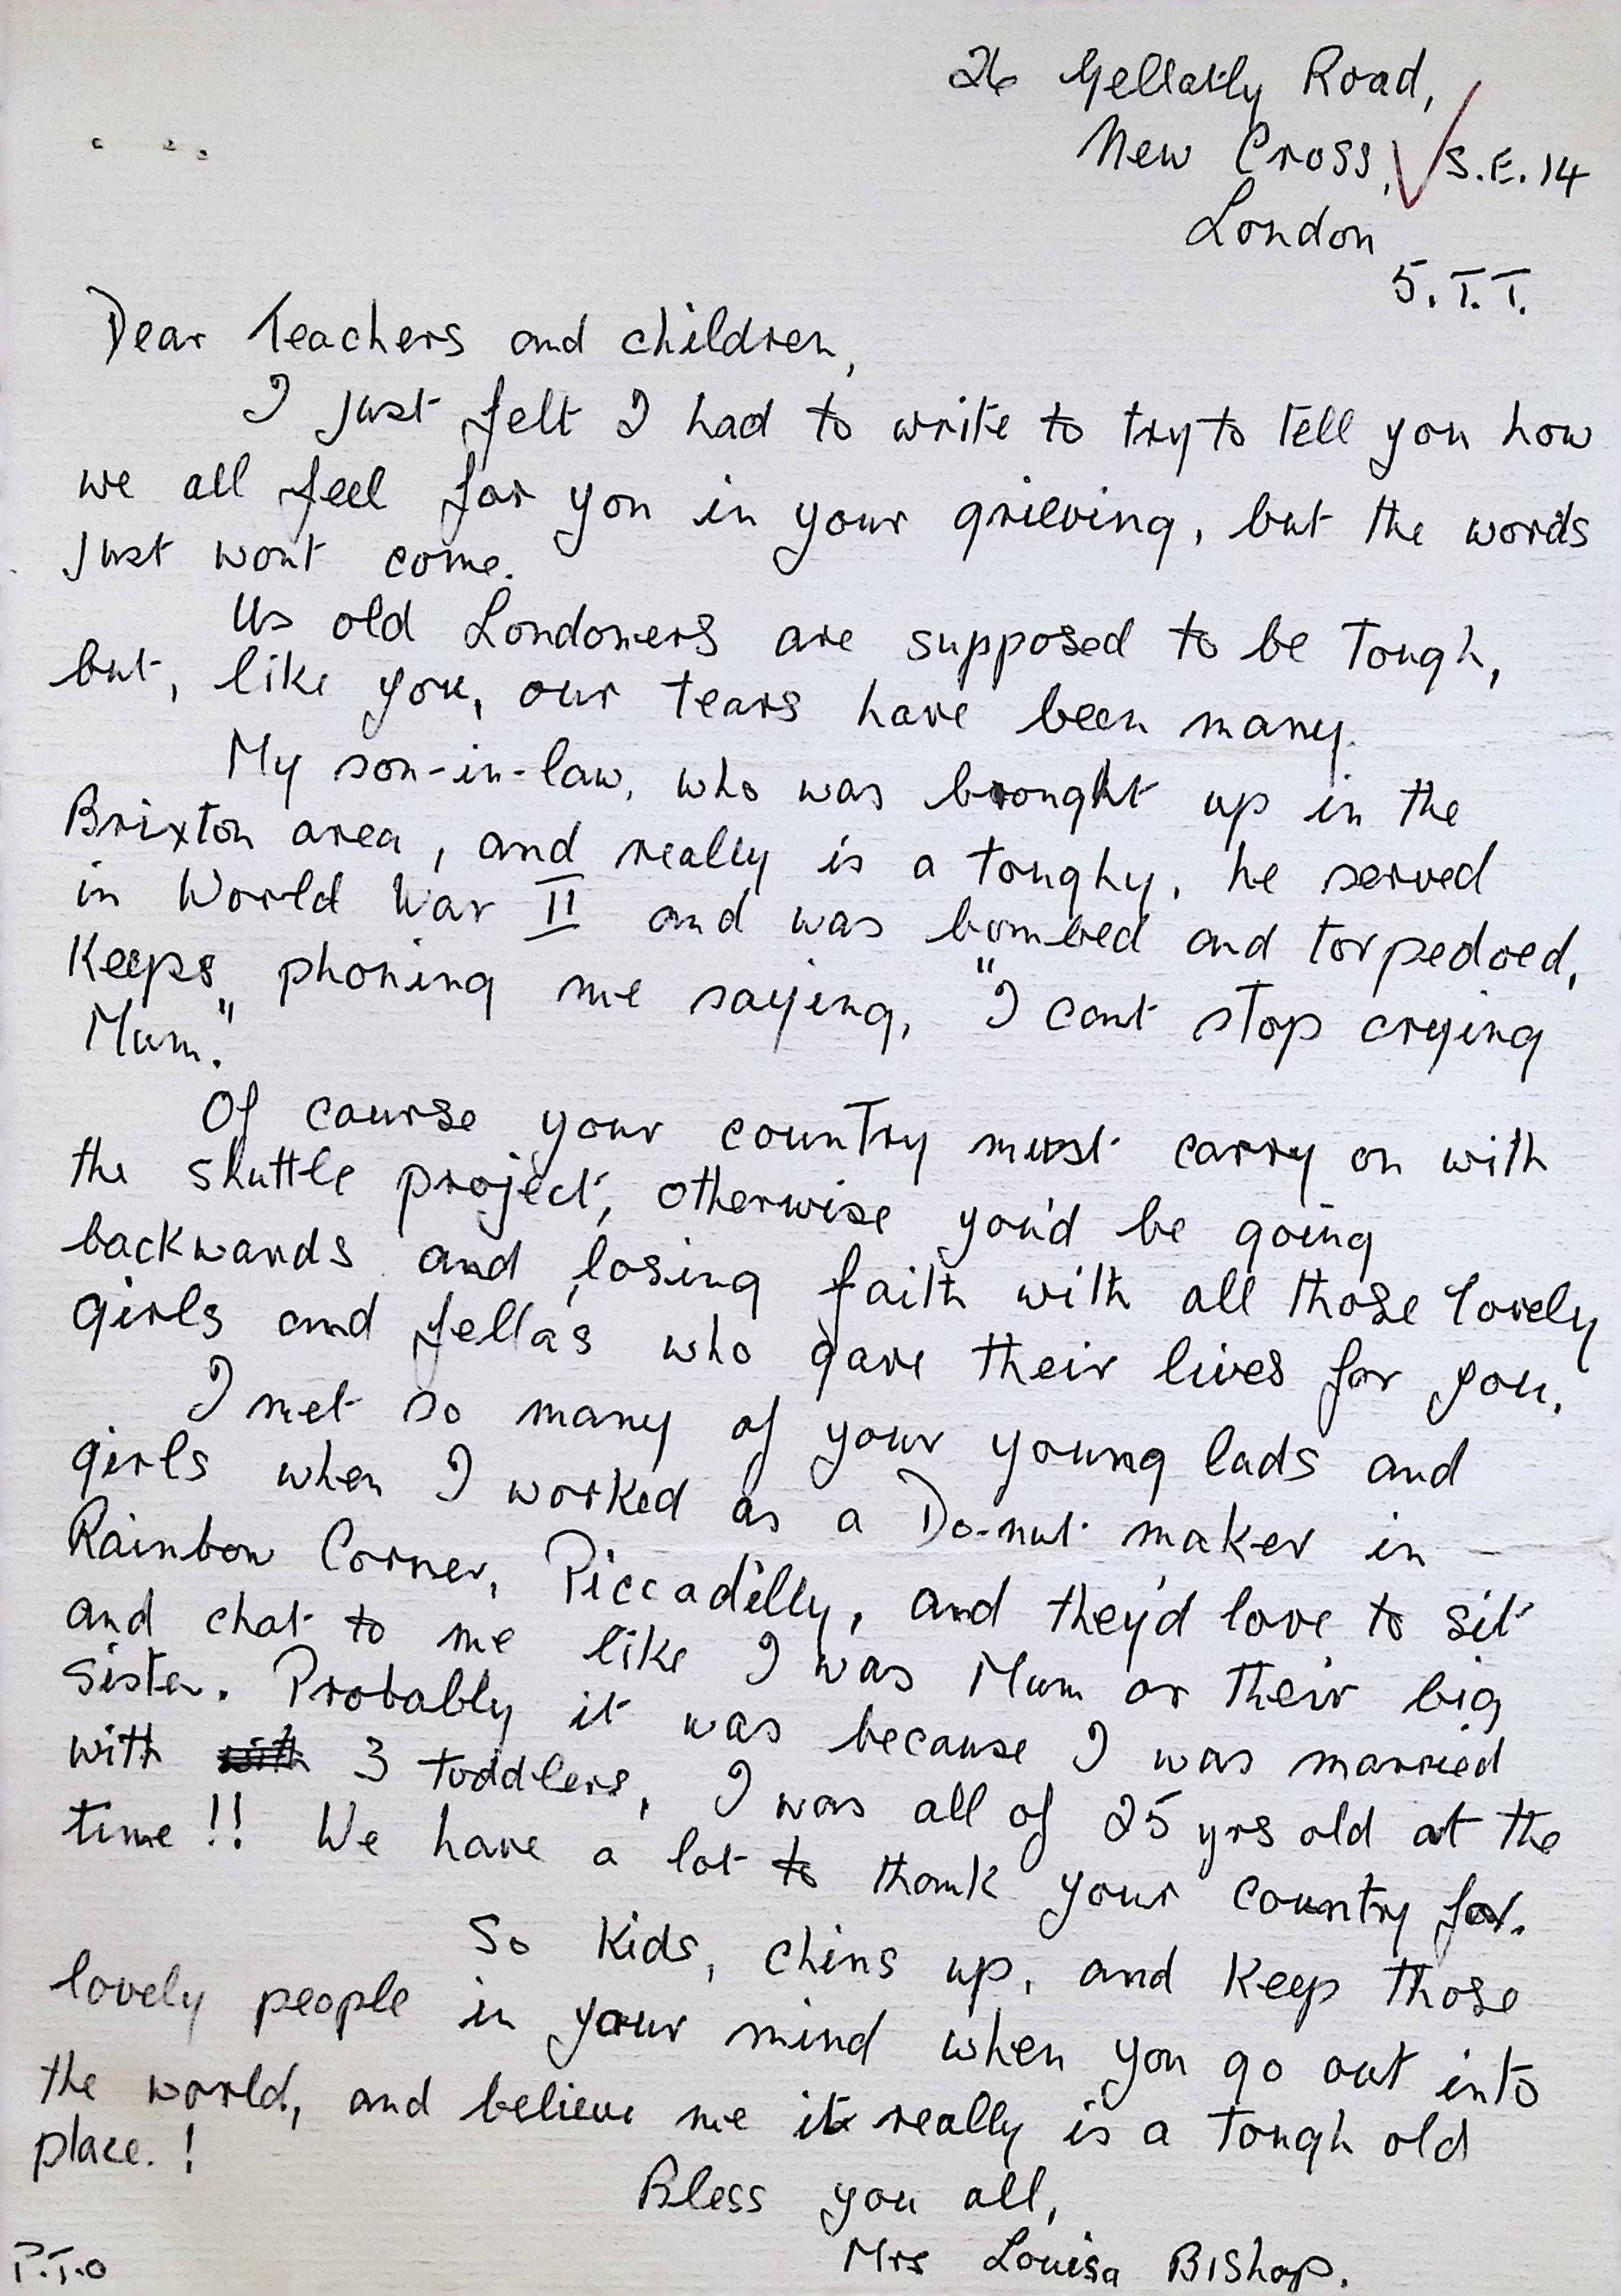 26 Gellatly Road,
New Cross, S.E. 14
London
5.T.T.
Dear Teachers and children,
I just felt I had to write to try to tell you how
we all feel for you in your grieving, but the words
just wont come.
Us old Londoners are supposed to be tough,
but, like you, our tears have been many.
My son-in-law, who was brought up in the
Brixton area, and really is a toughy, he served
in World War II and was bombed and torpedoed,
keeps phoning me saying, "I cant stop crying
Mum."
Of course your country must carry on with
the shuttle project, otherwise you'd be going
backwards and losing faith with all those lovely
girls and fella's who gave their lives for you.
I met so many of your young lads and
girls when I worked as a Do-nut maker in
Rainbow Corner, Piccadilly, and they'd love to sit
and chat to me like I was Mum or their big
sister. Probably it was because I was married
with with 3 toddlers, I was all of 25 yrs old at the
time!! We have a lot to thank your country for.
So kids, chins up, and keep those
lovely people in your mind when you go out into
the world, and believe me it really is a tough old
place.!
Bless you all,
Mrs Louisa Bishop.
P.T.O